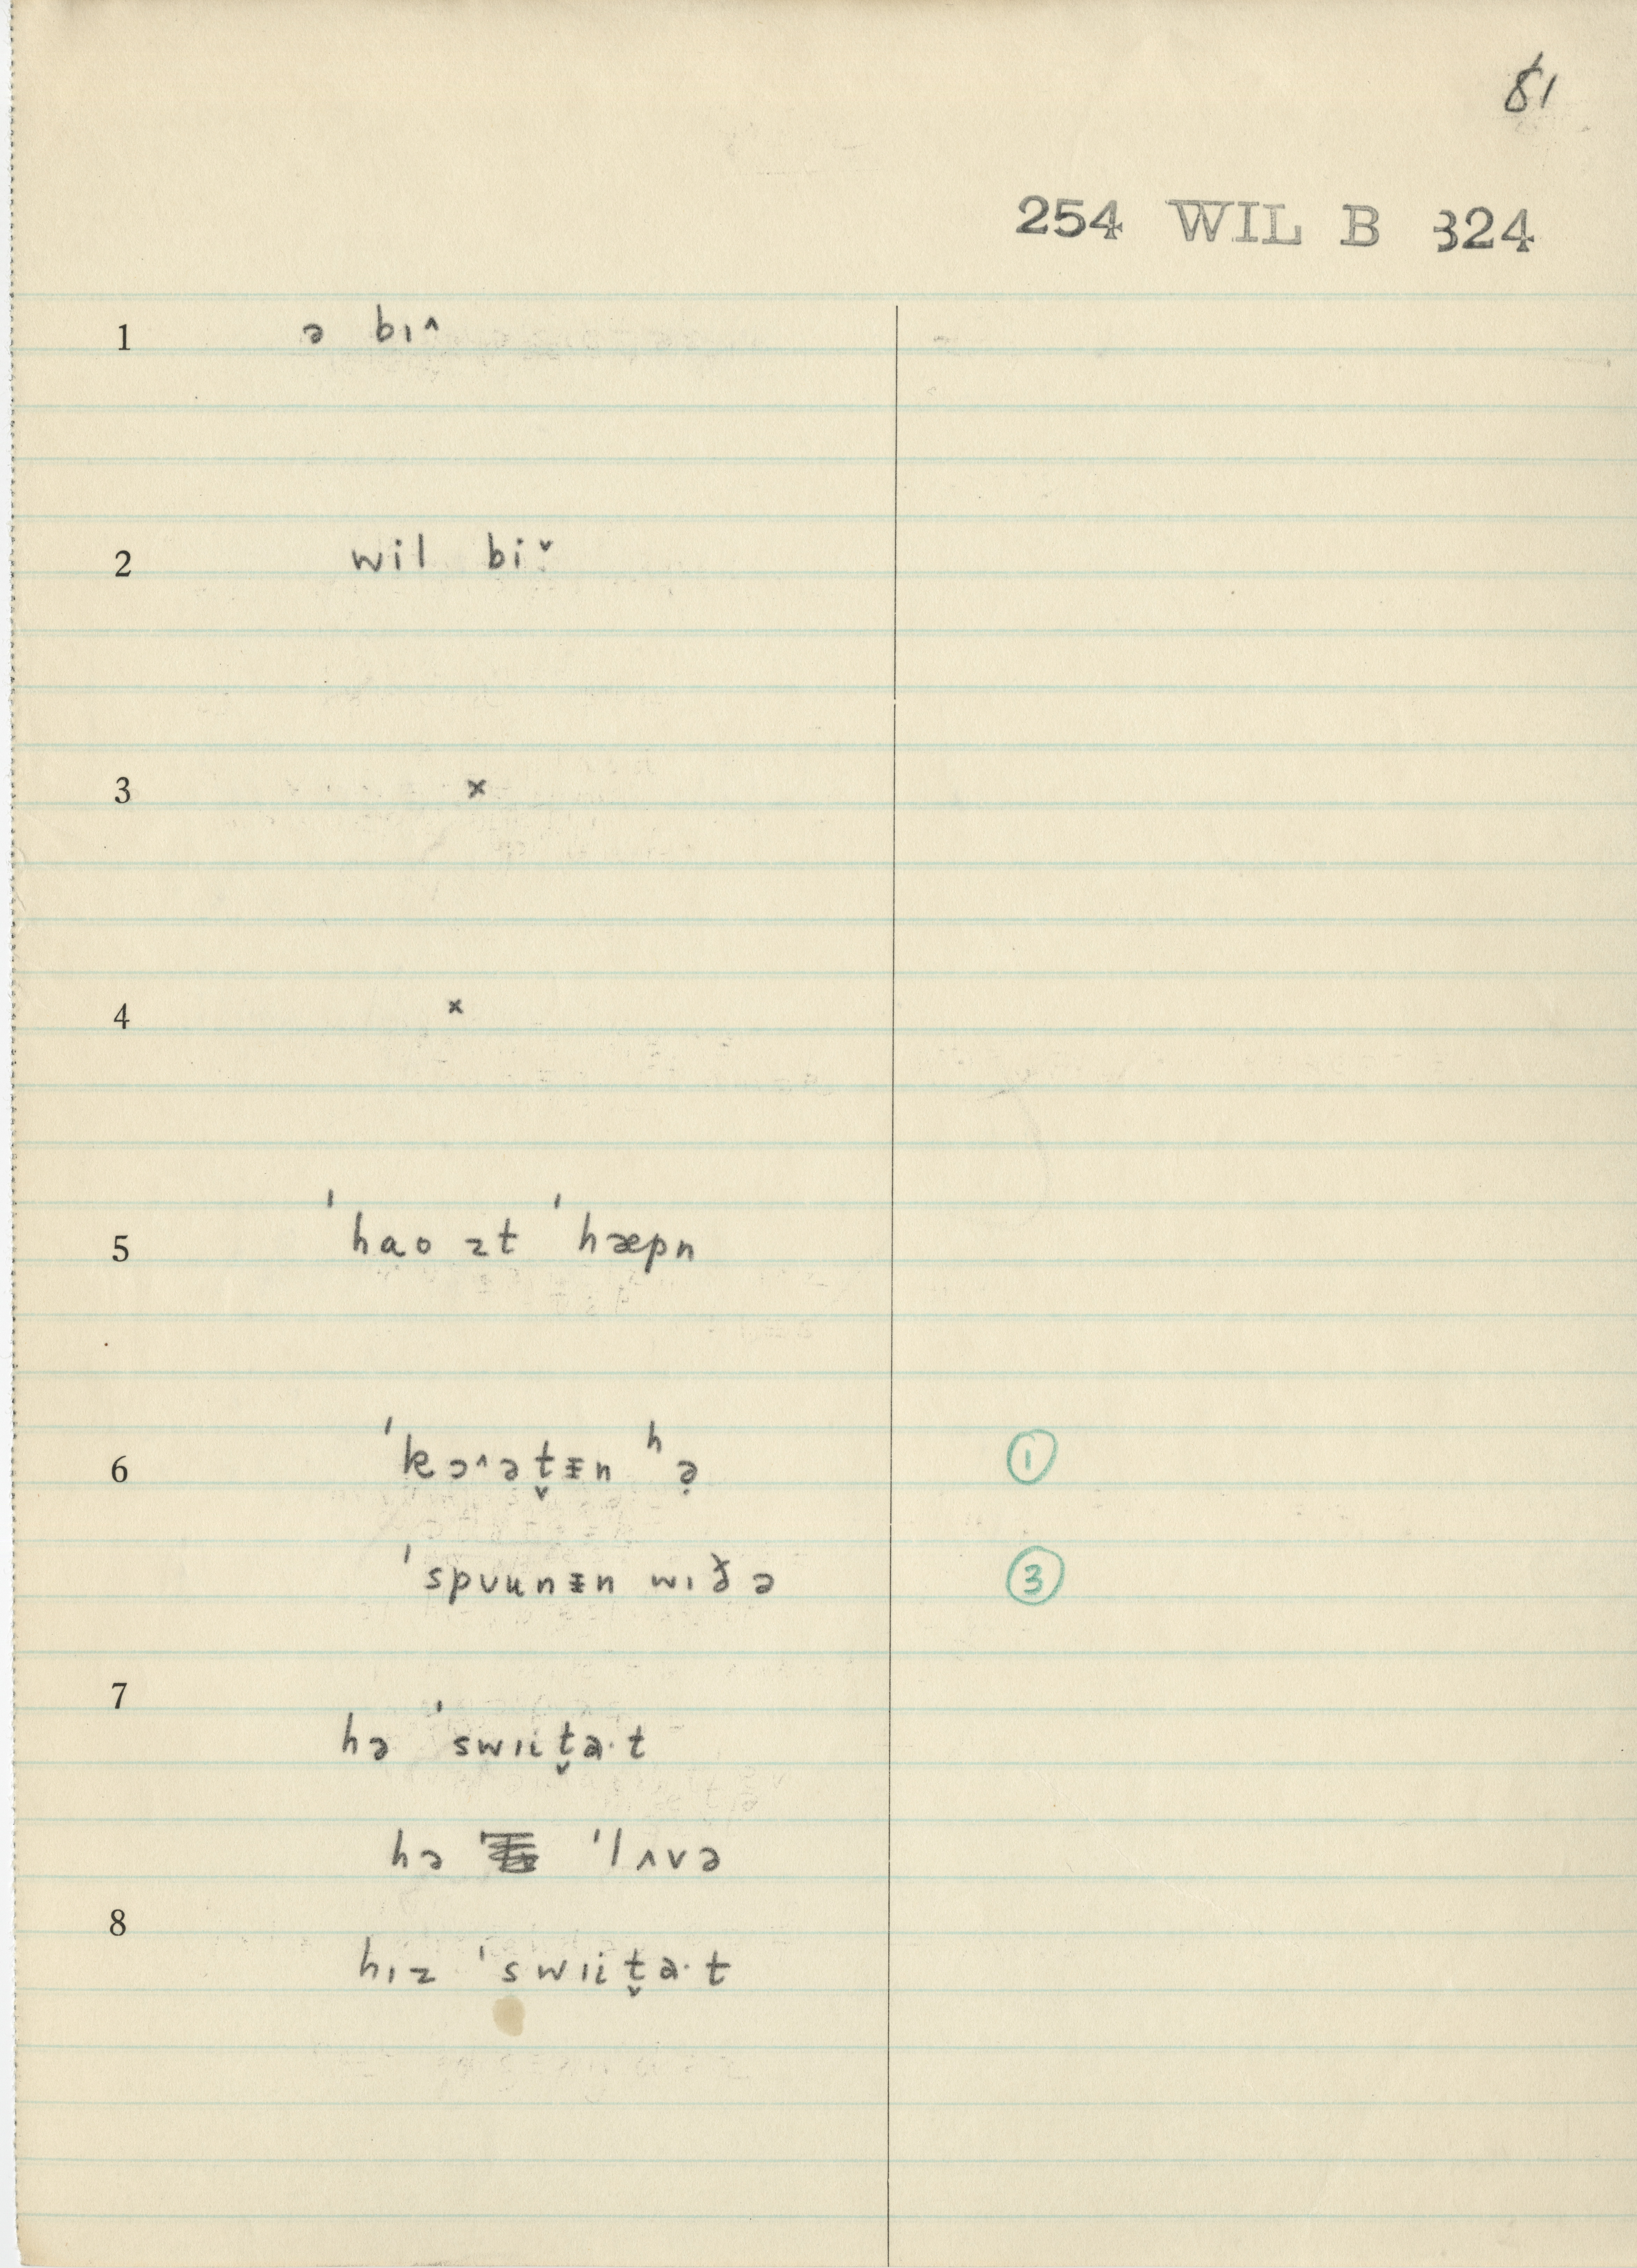 81
254 WIL B 324
1 ə bɪ^
2 wil biˑˇ
3 x
4 x
5 ˈhao ɪt ˈhæpn
6 ˈkɔ^ət̬ɨn ʰə̣ ①
ˈspʋunɨn wɪð ə ③
7
hə ˈswɪit̬ə·t
hə ˈlʌvə
8
hɪz ˈswɪit̬ə·t